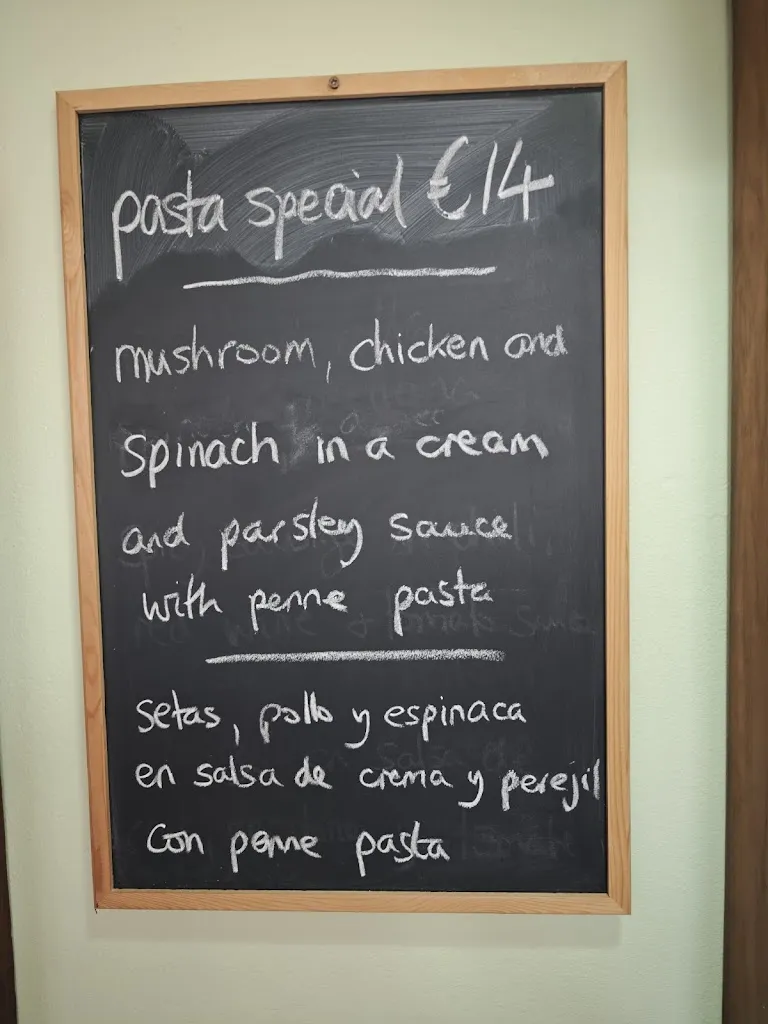 pasta special €14
mushroom, chicken and
spinach in a cream
and parsley sauce
with penne pasta
setas, pollo y espinaca
en salsa de crema y perejil
con penne pasta